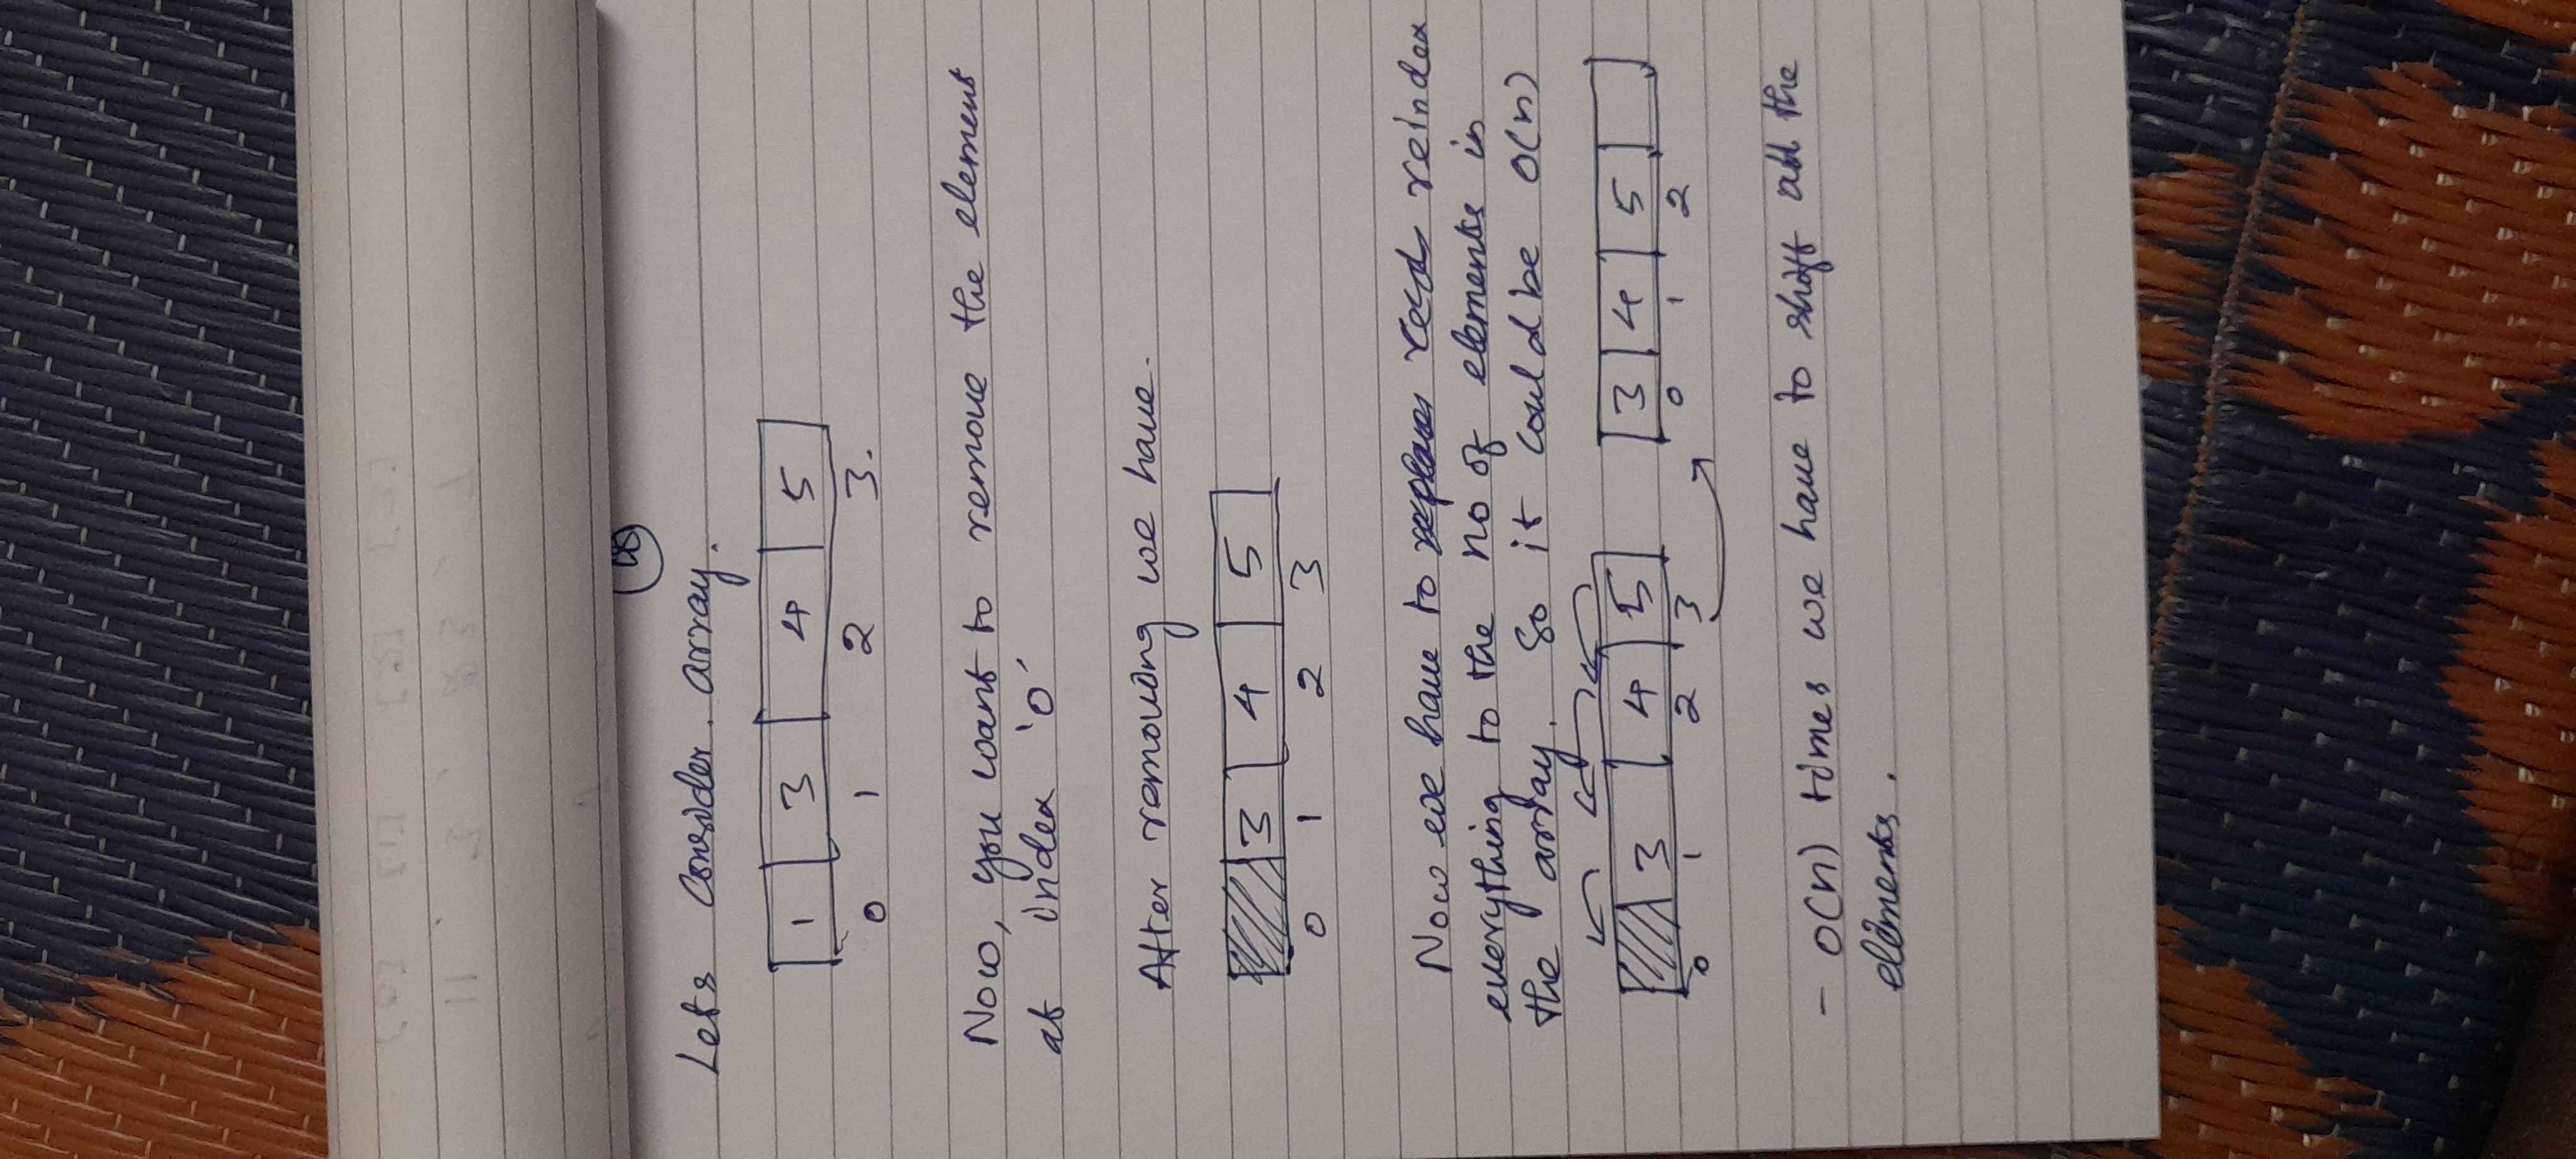 Lets consider. array.
1 3 4 5
0 1 2 3.
Now, you want to remove the element
at index '0'
After removing we have.
3 4 5
0 1 2 3
Now we have to reindex
everything to the no of elements in
the array. So it could be O(n)
3 4 5 3 4 5
0 1 2 3 0 1 2
- O(n) times we have to shift all the
elements.